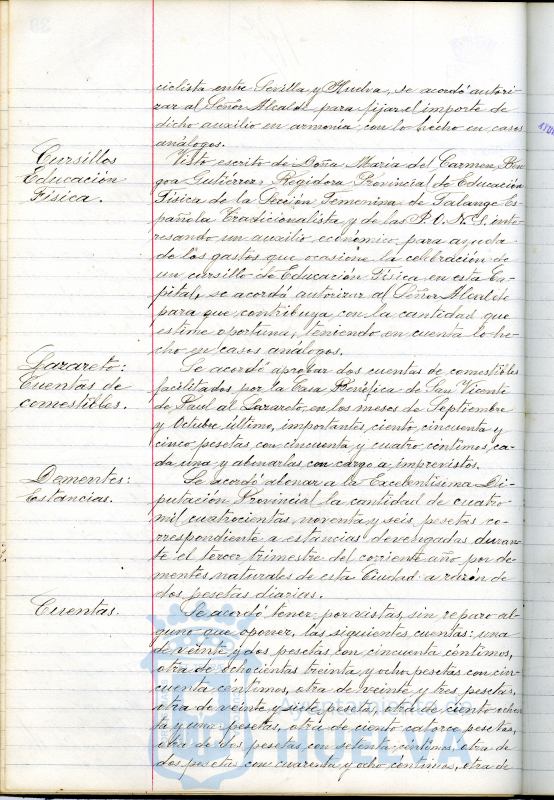 ciclista entre Sevilla y Huelva, se acordó autori-
zar al Señor Alcalde para fijar el importe de
dicho auxilio en armonía con lo hecho en casos
análogos.
Cursillos
Educación
Física.
Visto escrito de Doña Maria del Carmen Ben-
goa Gutiérrez, Regidora Provincial de Educación
Física de la Sección Femenina de Falange Es-
pañola Tradicionalista y de las J. O. N. S. inte-
resando un auxilio económico para ayuda
de los gastos que ocasione la celebración de
un cursillo de Educación Física en esta Ca-
pital, se acordó autorizar al Señor Alcalde
para que contribuya con la cantidad que
estime oportuna, teniendo en cuenta lo he-
cho en casos análogos.
Lazareto:
Cuentas de
comestibles.
Se acordó aprobar dos cuentas de comestibles
facilitados por la Casa Benéfica de San Vicente
de Paul al Lazareto, en los meses de Septiembre
y Octubre último, importantes, ciento cincuenta y
cinco pesetas con cincuenta y cuatro céntimos, ca-
da una y abonarlas con cargo a imprevistos.
Dementes:
Estancias.
Se acordó abonar a la Excelentísima Di-
putación Provincial la cantidad de cuatro
mil cuatrocientas noventa y seis pesetas co-
rrespondiente a estancias devengadas duran-
te el tercer trimestre del corriente año por de-
mentes naturales de esta Ciudad a razón de
dos pesetas diarias.
Cuentas.
Se acordó tener por vistas, sin reparo al-
guno que oponer, las siguientes cuentas: una
de veinte y dos pesetas con cincuenta céntimos,
otra de ochocientas treinta y ocho pesetas con cin-
cuenta céntimos, otra de veinte y tres pesetas,
otra de veinte y siete pesetas, otra de ciento ochen-
ta y una pesetas, otra de ciento catorce pesetas,
otra de dos pesetas con setenta céntimos, otra de
dos pesetas con cuarenta y ocho céntimos, otra de